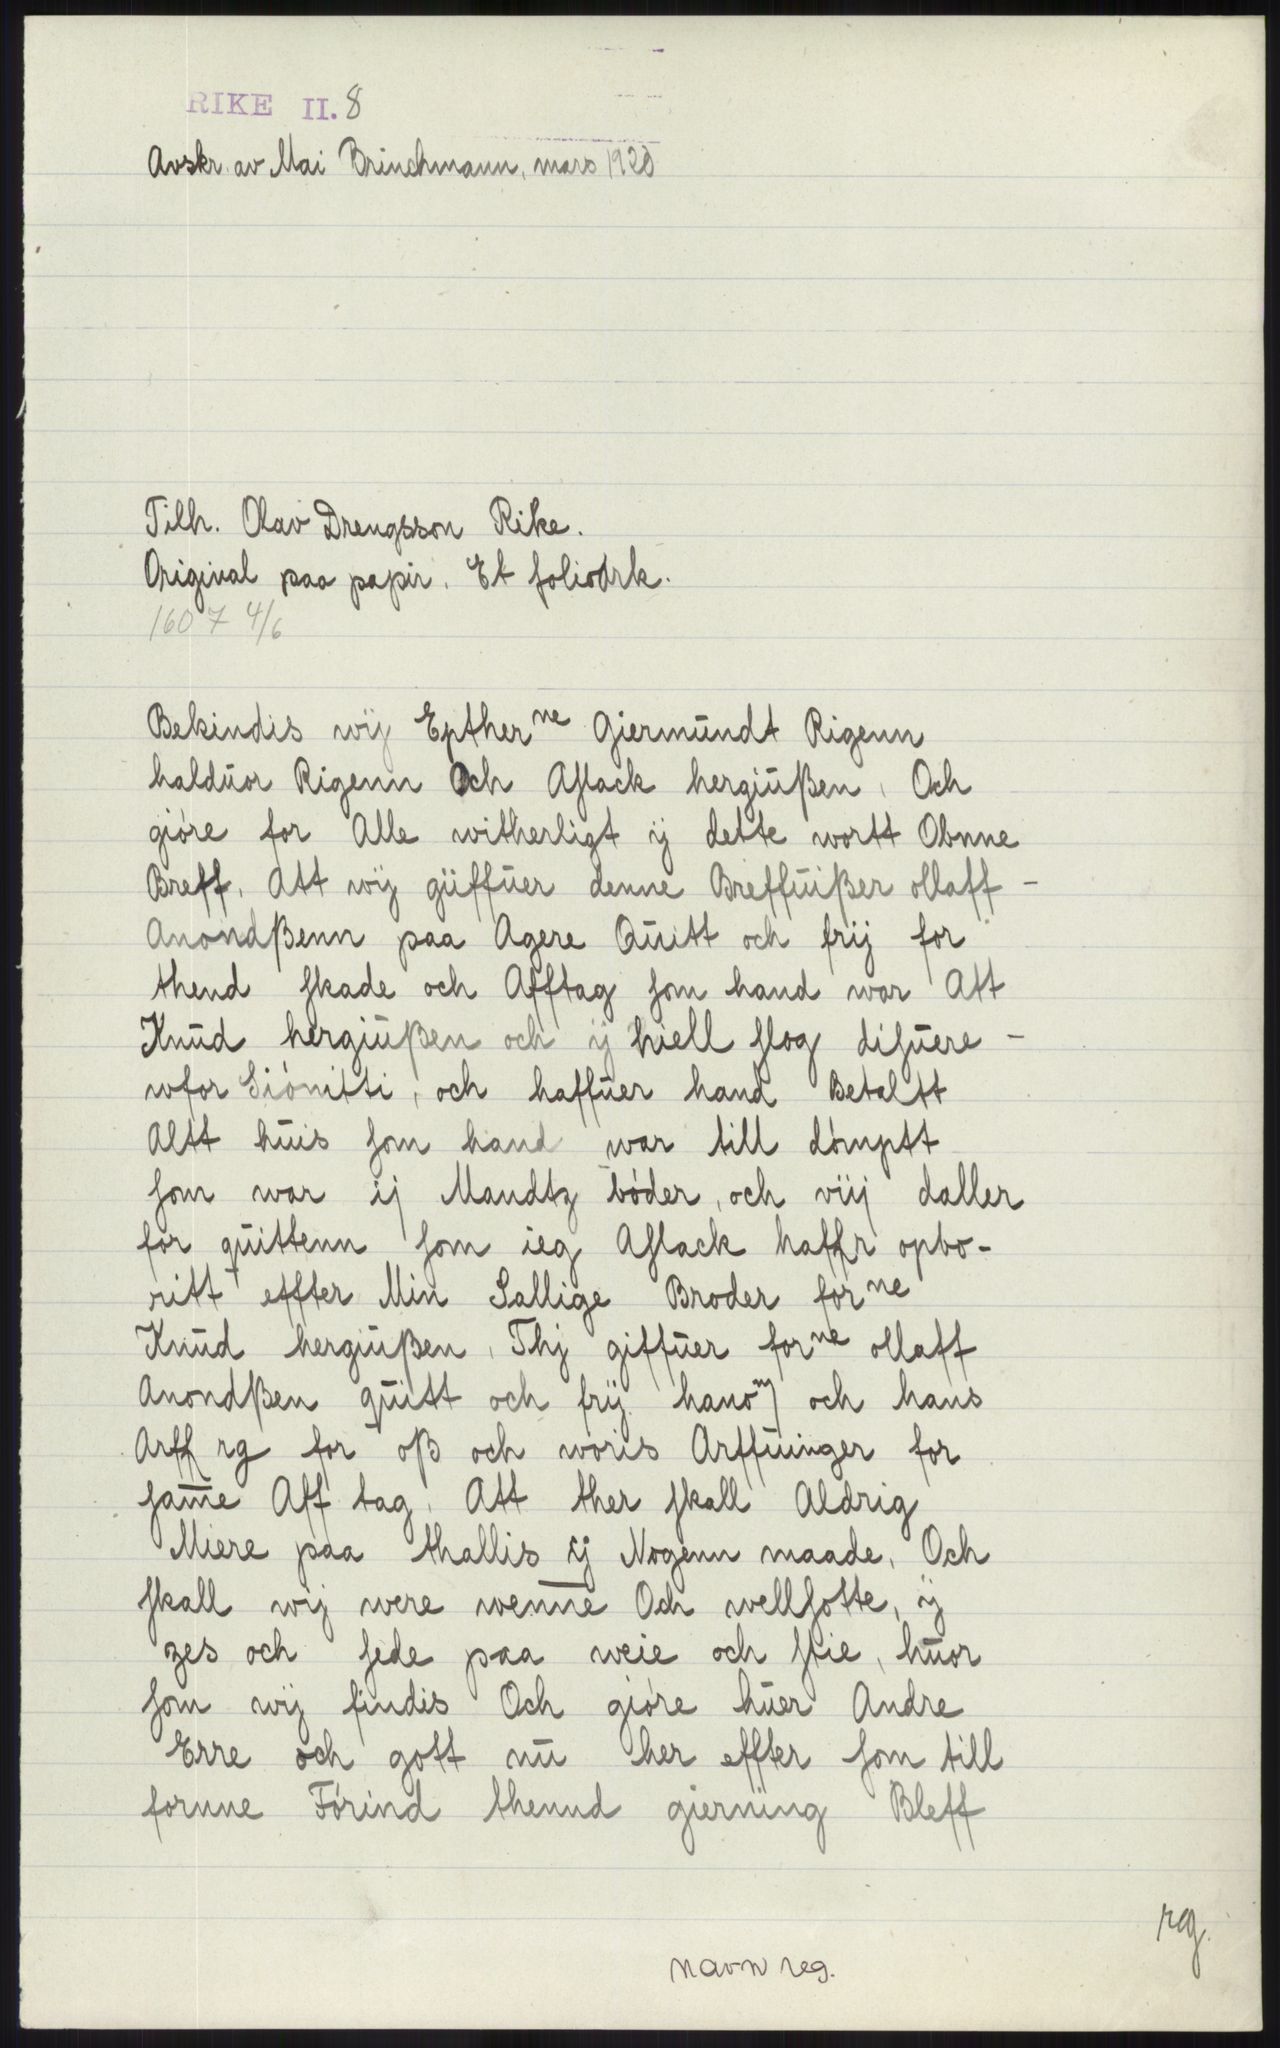 RIKE II. 8
Avskr. av Mai Brinchmann, mars 1920
Tilh. Olav Drengsson Rike.
Original paa papir. Et folioark.
1607 4/6
Bekindis wij Epther ne Giermundt Rigenn
halduor Rigenn Och Aslack hergiußen, Och
gióre for Alle witherligt ij dette wortt Obnne
Breff, Att wij güffuer denne Breffuißer ollaff –
Anondßenn paa Agere Quitt och frij for
thend skade och Afftag som hand war Att
Knud hergiußen och ij hiell slog disuere –
wfor Siónitti, och haffuer hand Betaltt
Altt huis som hand war till dómptt
som war ij Mandtz bóder, och viij daller
for quittenn som ieg Aslack haffr opbo-
ritt effter Min Sallige Broder for ne
Knud hergiußen, Thj giffuer for ne ollaff
Anondßen quitt och frij hanom och hans
Arff rg for oß och woris Arffuinger for
same Aff tag, Att ther skall Aldrig
Miere paa thallis ij Nogenn maade, Och
skall wij were wenne Och wellsotte, ij
zes och sede paa weie och stie, huor
som wij findis Och gióre huer Andre
Erre och gott nu her effter som till
fornne Fórind thennd gierning Bleff
rg.
navn reg.